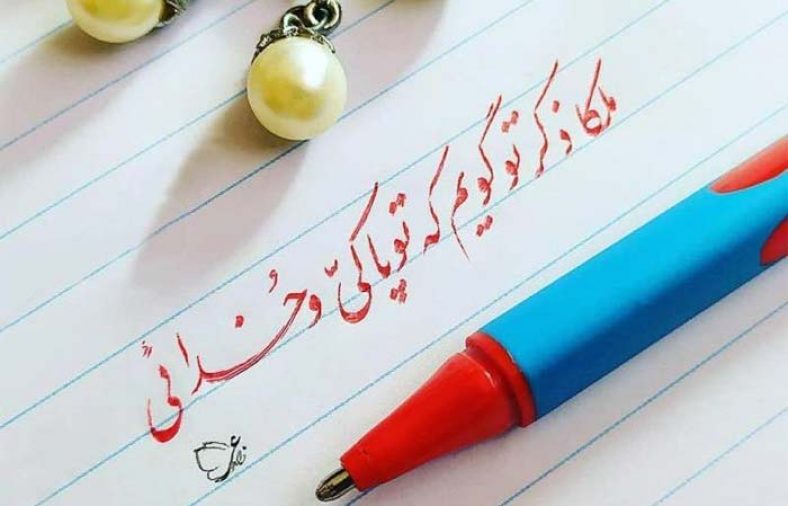 ملکا ذکر تو گویم که تو پاکیّ و خُدائی